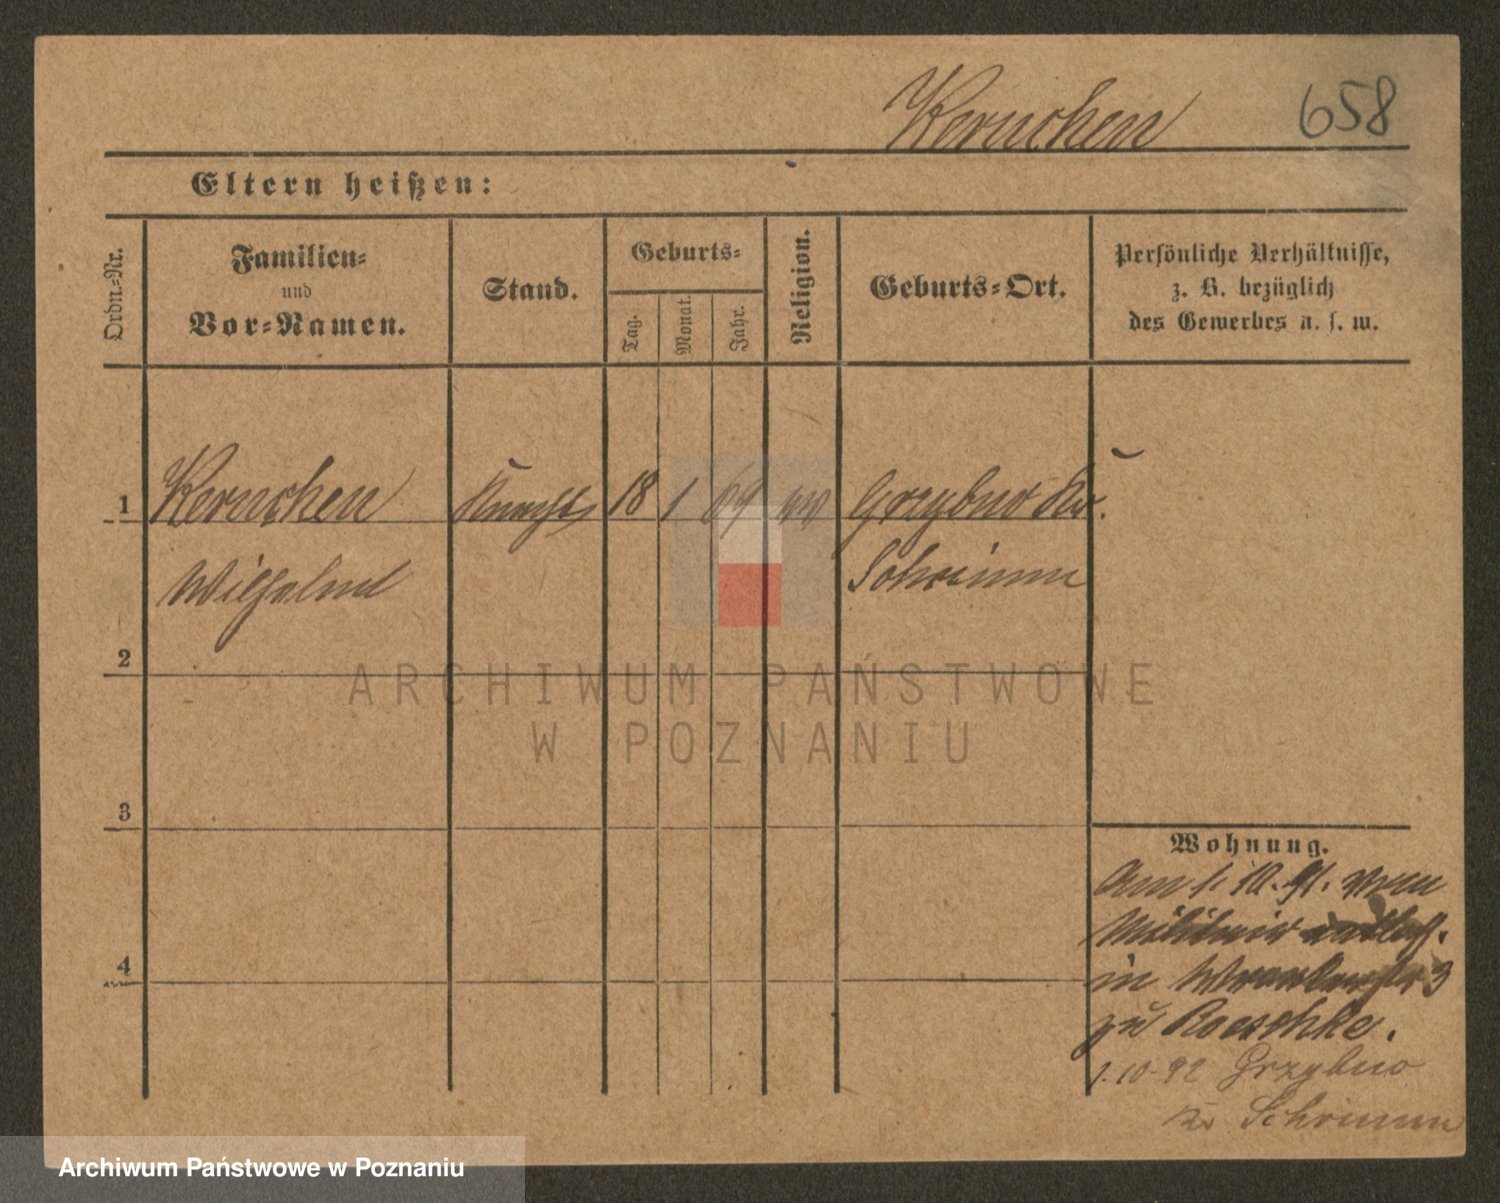 Kernchen 658
Eltern heißen:
Ordn.-Nr.
Familien-
und
Vor-Namen.
Stand.
Geburts-
Tag.
Monat.
Jahr.
Religion.
Geburts-Ort.
Persönliche Verhältnisse,
z. B. bezüglich
des Gewerbes u. s. w.
1 Kernchen Knecht 18 1 69 ev Grzybno Kr.
Wilhelm Schrimm
2
3
4
Wohnung.
Am 1. 10. 91. vom
Militair entlass.
in 3
zu Roeschke.
1. 10. 92 Grzybno
Kr Schrimm
ARCHIWUM PAŃSTWOWE
W POZNANIU
Archiwum Państwowe w Poznaniu